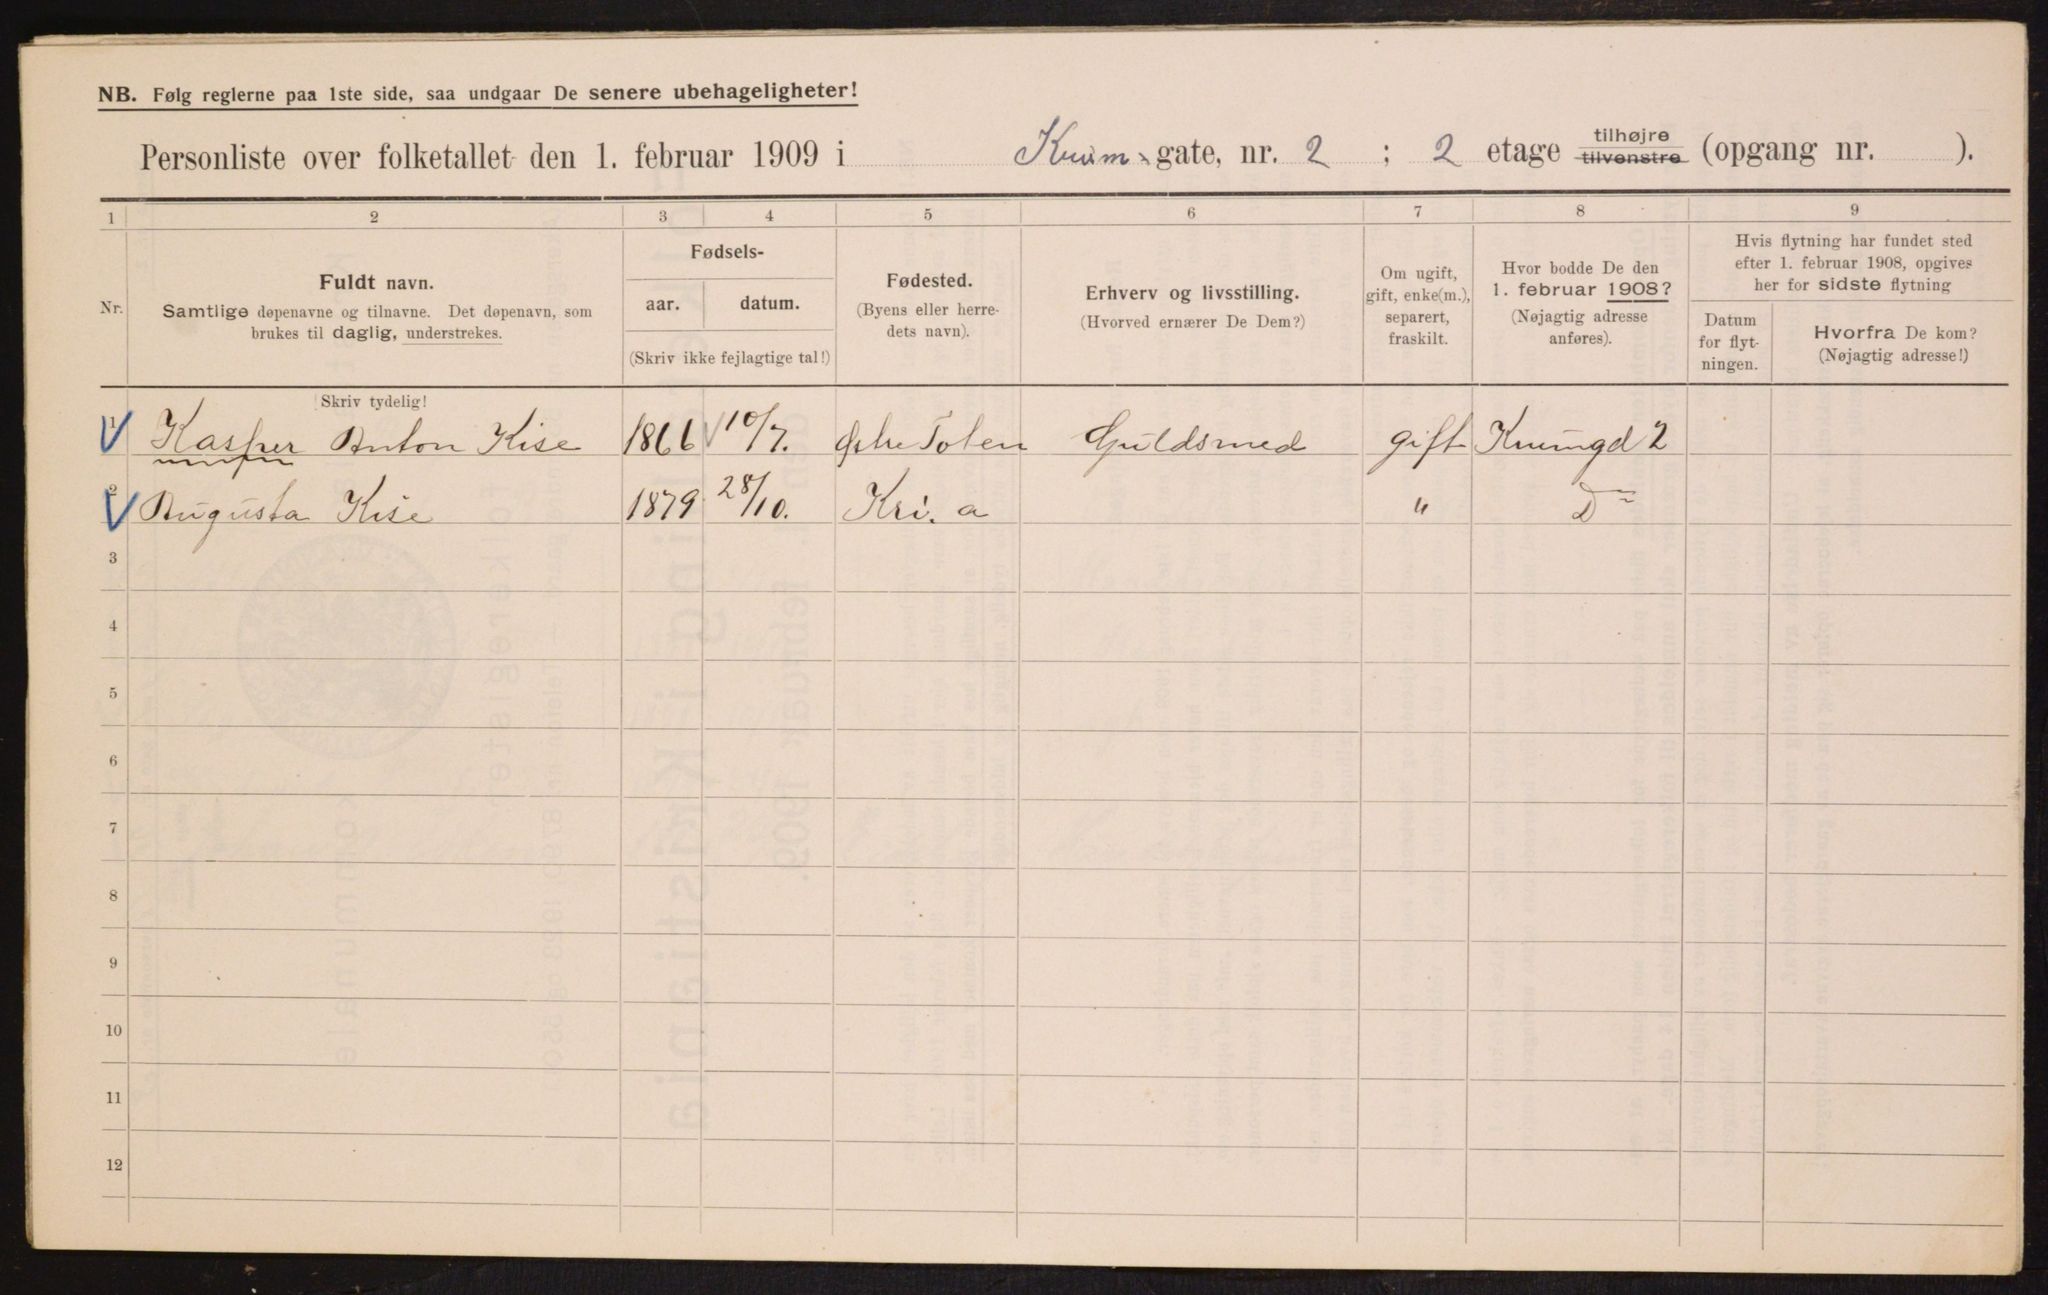 NB. Følg reglerne paa 1ste side, saa undgaar De senere ubehageligheter!
Personliste over folketallet den 1. februar 1909 i Kvim- gate, nr. 2 ; 2 etage tilhøjre tilvenstre (opgang nr. ).
1 2 3 4 5 6 7 8 9
Nr.
Fuldt navn.
Samtlige døpenavne og tilnavne. Det døpenavn, som
brukes til daglig, understrekes.
Fødsels-
aar. datum.
(Skriv ikke fejlagtige tal!)
Fødested.
(Byens eller herre-
dets navn).
Erhverv og livsstilling.
(Hvorved ernærer De Dem?)
Om ugift,
gift, enke(m.),
separert,
fraskilt.
Hvor bodde De den
1. februar 1908?
(Nøjagtig adresse
anføres).
Hvis flytning har fundet sted
efter 1. februar 1908, opgives
her for sidste flytning
Datum
for flyt-
ningen.
Hvorfra De kom?
(Nøjagtig adresse!)
Skriv tydelig!
1 Kasper Anton Kise 1866 10/7. Østre Toten Guldsmed gift 2
2 Augusta Kise 1879 28/10. Kri. a " D
3
4
5
6
7
8
9
10
11
12